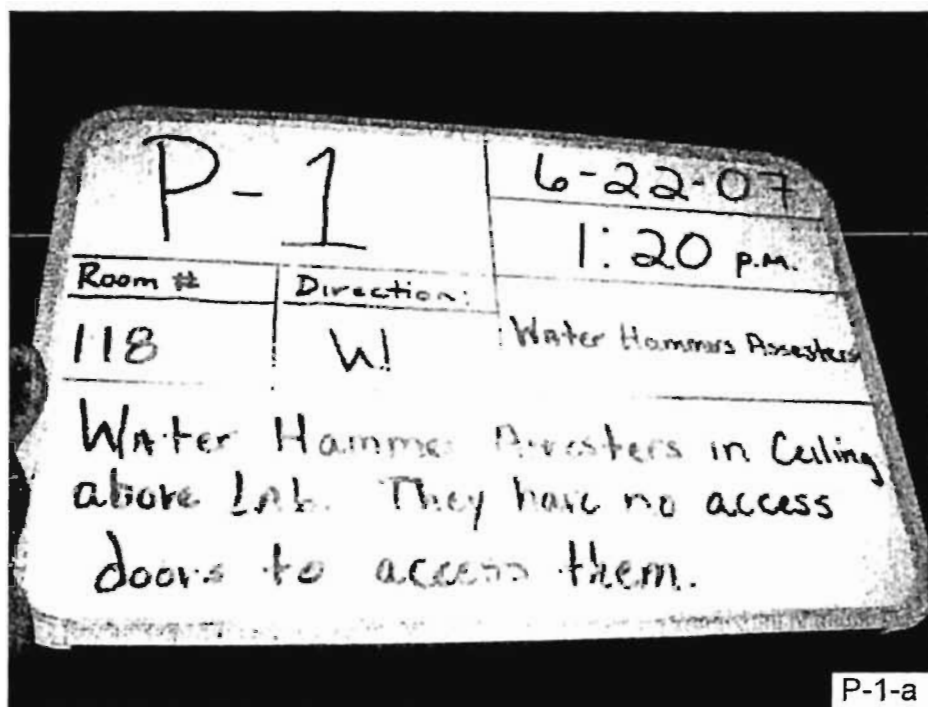 P-1
6-22-07
1:20 P.M.
Room #
Direction:
118
W
Water Hammers Assesters
Water Hammer Arresters in Ceiling
above Lab. They have no access
doors to access them.
P-1-a